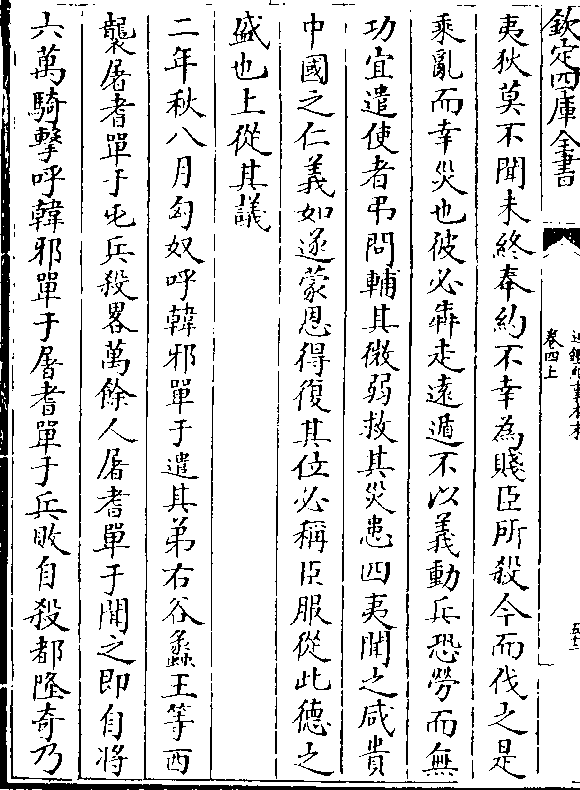 欽定四庫全書
卷四上
夷狄莫不聞未終奉約不幸為賤臣所殺今而伐之是
乘亂而幸災也彼必犇走遠遁不以義動兵恐勞而無
功宜遣使者弔問輔其微弱救其災患四夷聞之咸貴
中國之仁義如遂蒙恩得復其位必稱臣服從此德之
盛也上從其議
二年秋八月匈奴呼韓邪單于遣其弟右谷蠡王等西
襲屠耆單于屯兵殺畧萬餘人屠耆單于聞之即自將
六萬騎擊呼韓邪單于屠耆單于兵敗自殺都隆奇乃